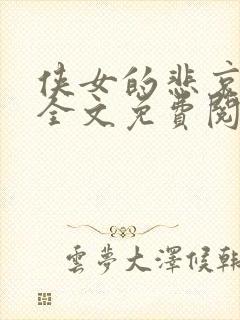 侠女的悲哀
全文免費閱
雲夢大澤候韓